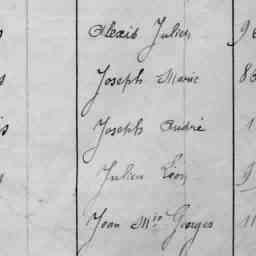 Alexis Julien
Joseph Marie
Joseph André
Julien Léon
Jean Mie Georges